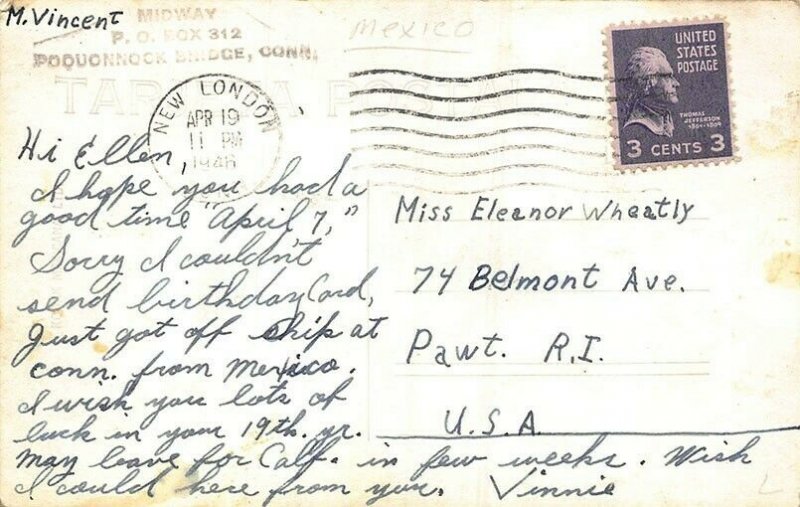 M. Vincent
MIDWAY
P. O. BOX 312
POQUONNOCK BRIDGE, CONN.
Mexico
TARJETA POSTAL
NEW LONDON
APR 19
11 PM
1946
UNITED
STATES
POSTAGE
THOMAS
JEFFERSON
1801-1809
3 CENTS 3
Hi Ellen,
I hope you had a
good time "April 7,"
Sorry I couldn't
send birthday Card,
Just got off ship at
conn. from Mexico.
I wish you lots of
luck in your 19th. yr.
May leave for Calf. in few weeks. Wish
I could here from you. Vinnie
Miss Eleanor Wheatly
74 Belmont Ave.
Pawt. R.I.
U.S.A.